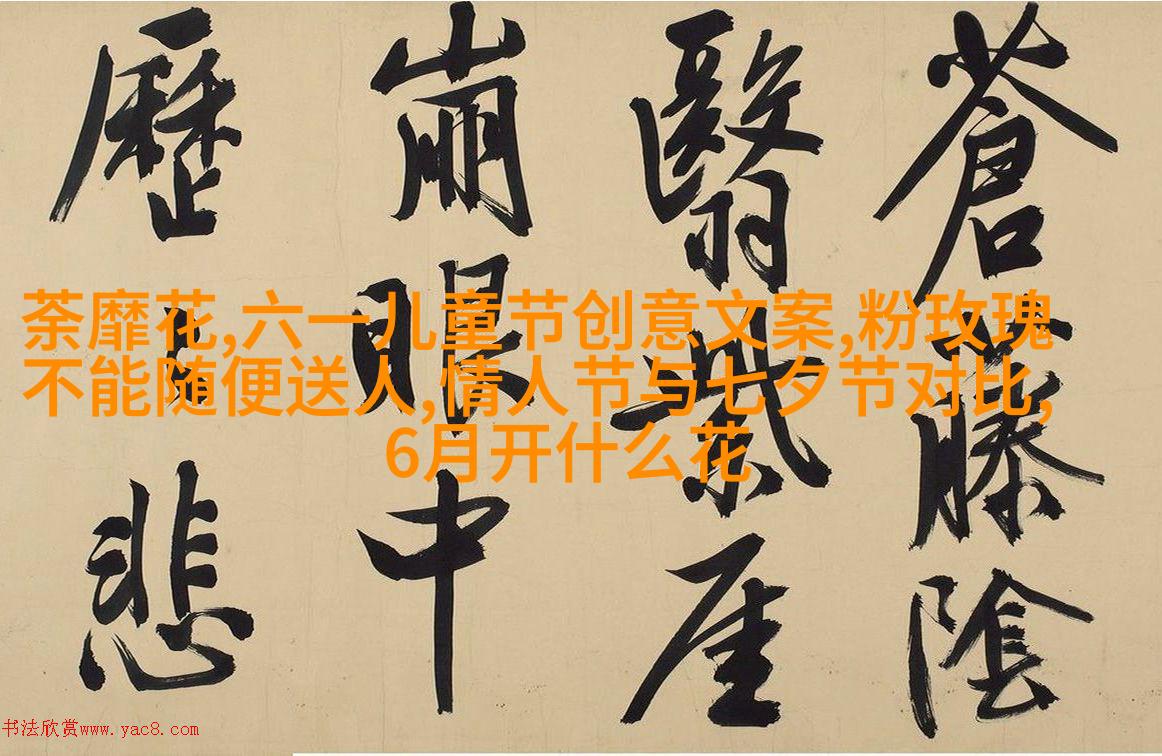 蒼藤陰
翳紫厓
崩眼中
歷
悲
荼靡花,六一儿童节创意文案,粉玫瑰
不能随便送人,情人节与七夕节对比,
6月开什么花
书法欣赏www.yac8.com